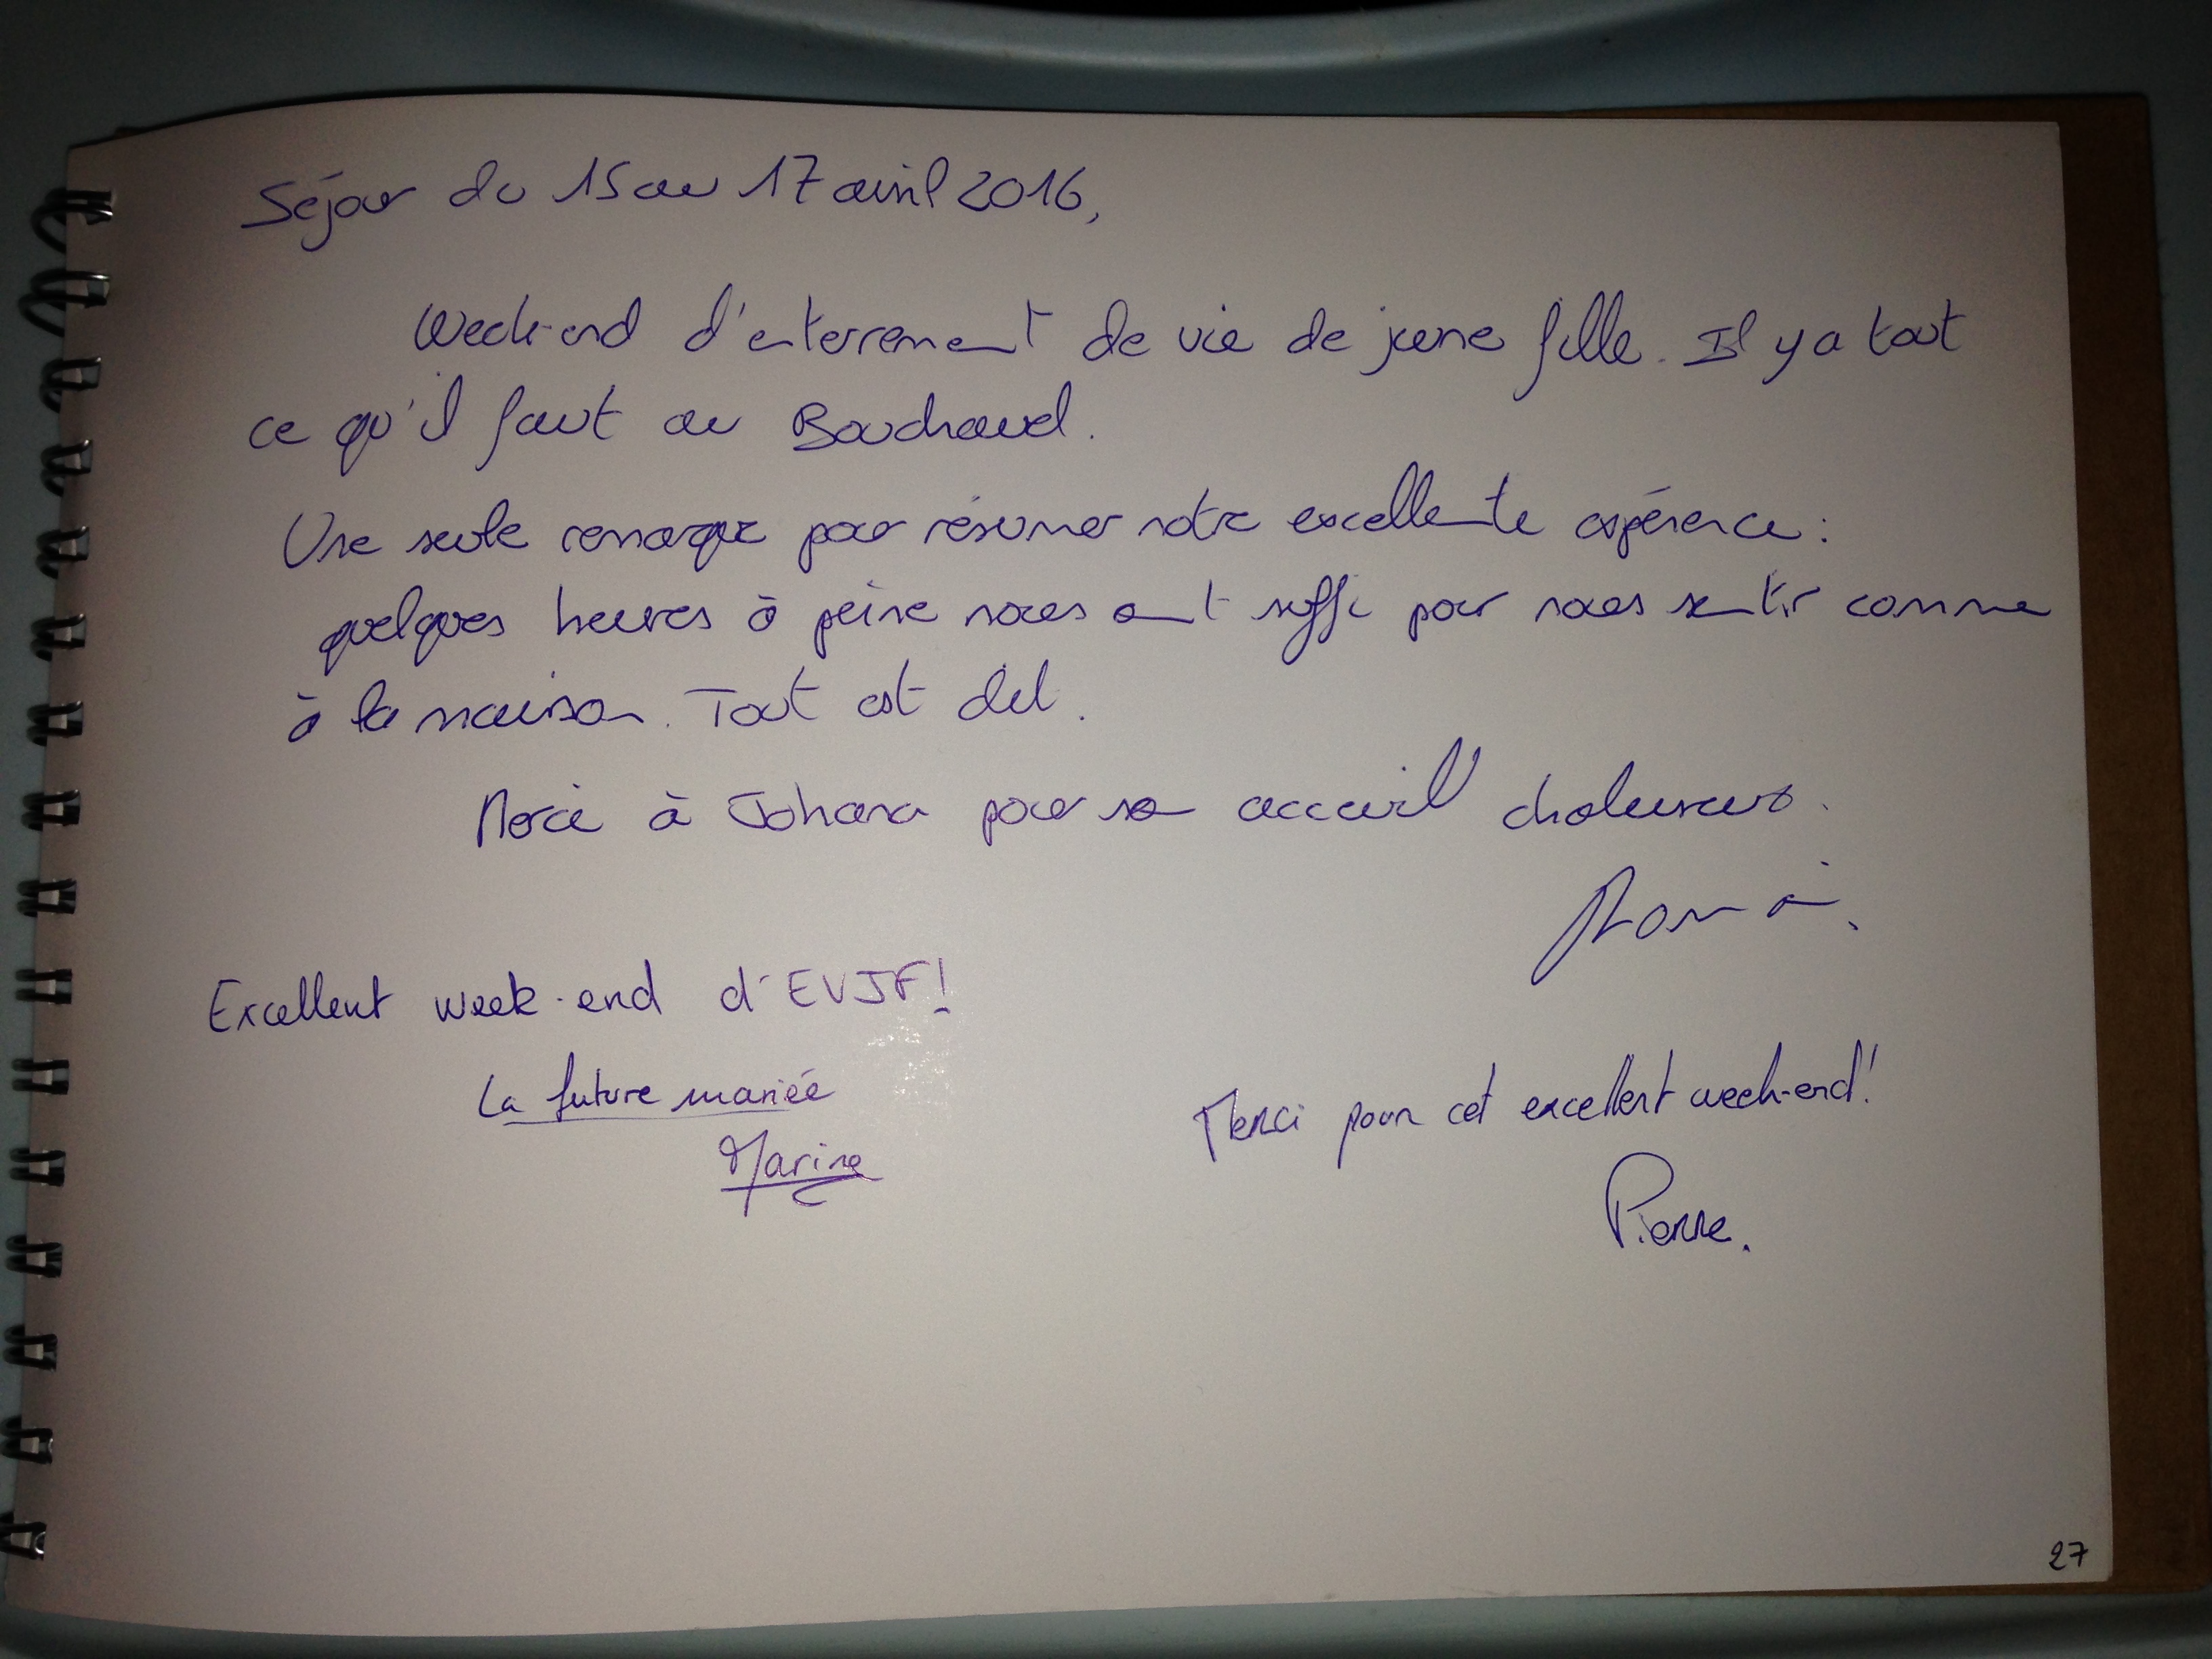 Séjour du 15 au 17 avril 2016,
Week-end d'enterrement de vie de jeune fille. Il y a tout
ce qu'il faut au Bouchaud.
Une seule remarque pour résumer notre excellente expérience :
quelques heures à peine nous ont suffi pour nous sentir comme
à la maison. Tout est dit.
Merci à Johana pour son acceuil chaleureux.
Romain.
Excellent week-end d'EVJF!
La future mariée
Marine
Merci pour cet excellent week-end!
Pierre.
27